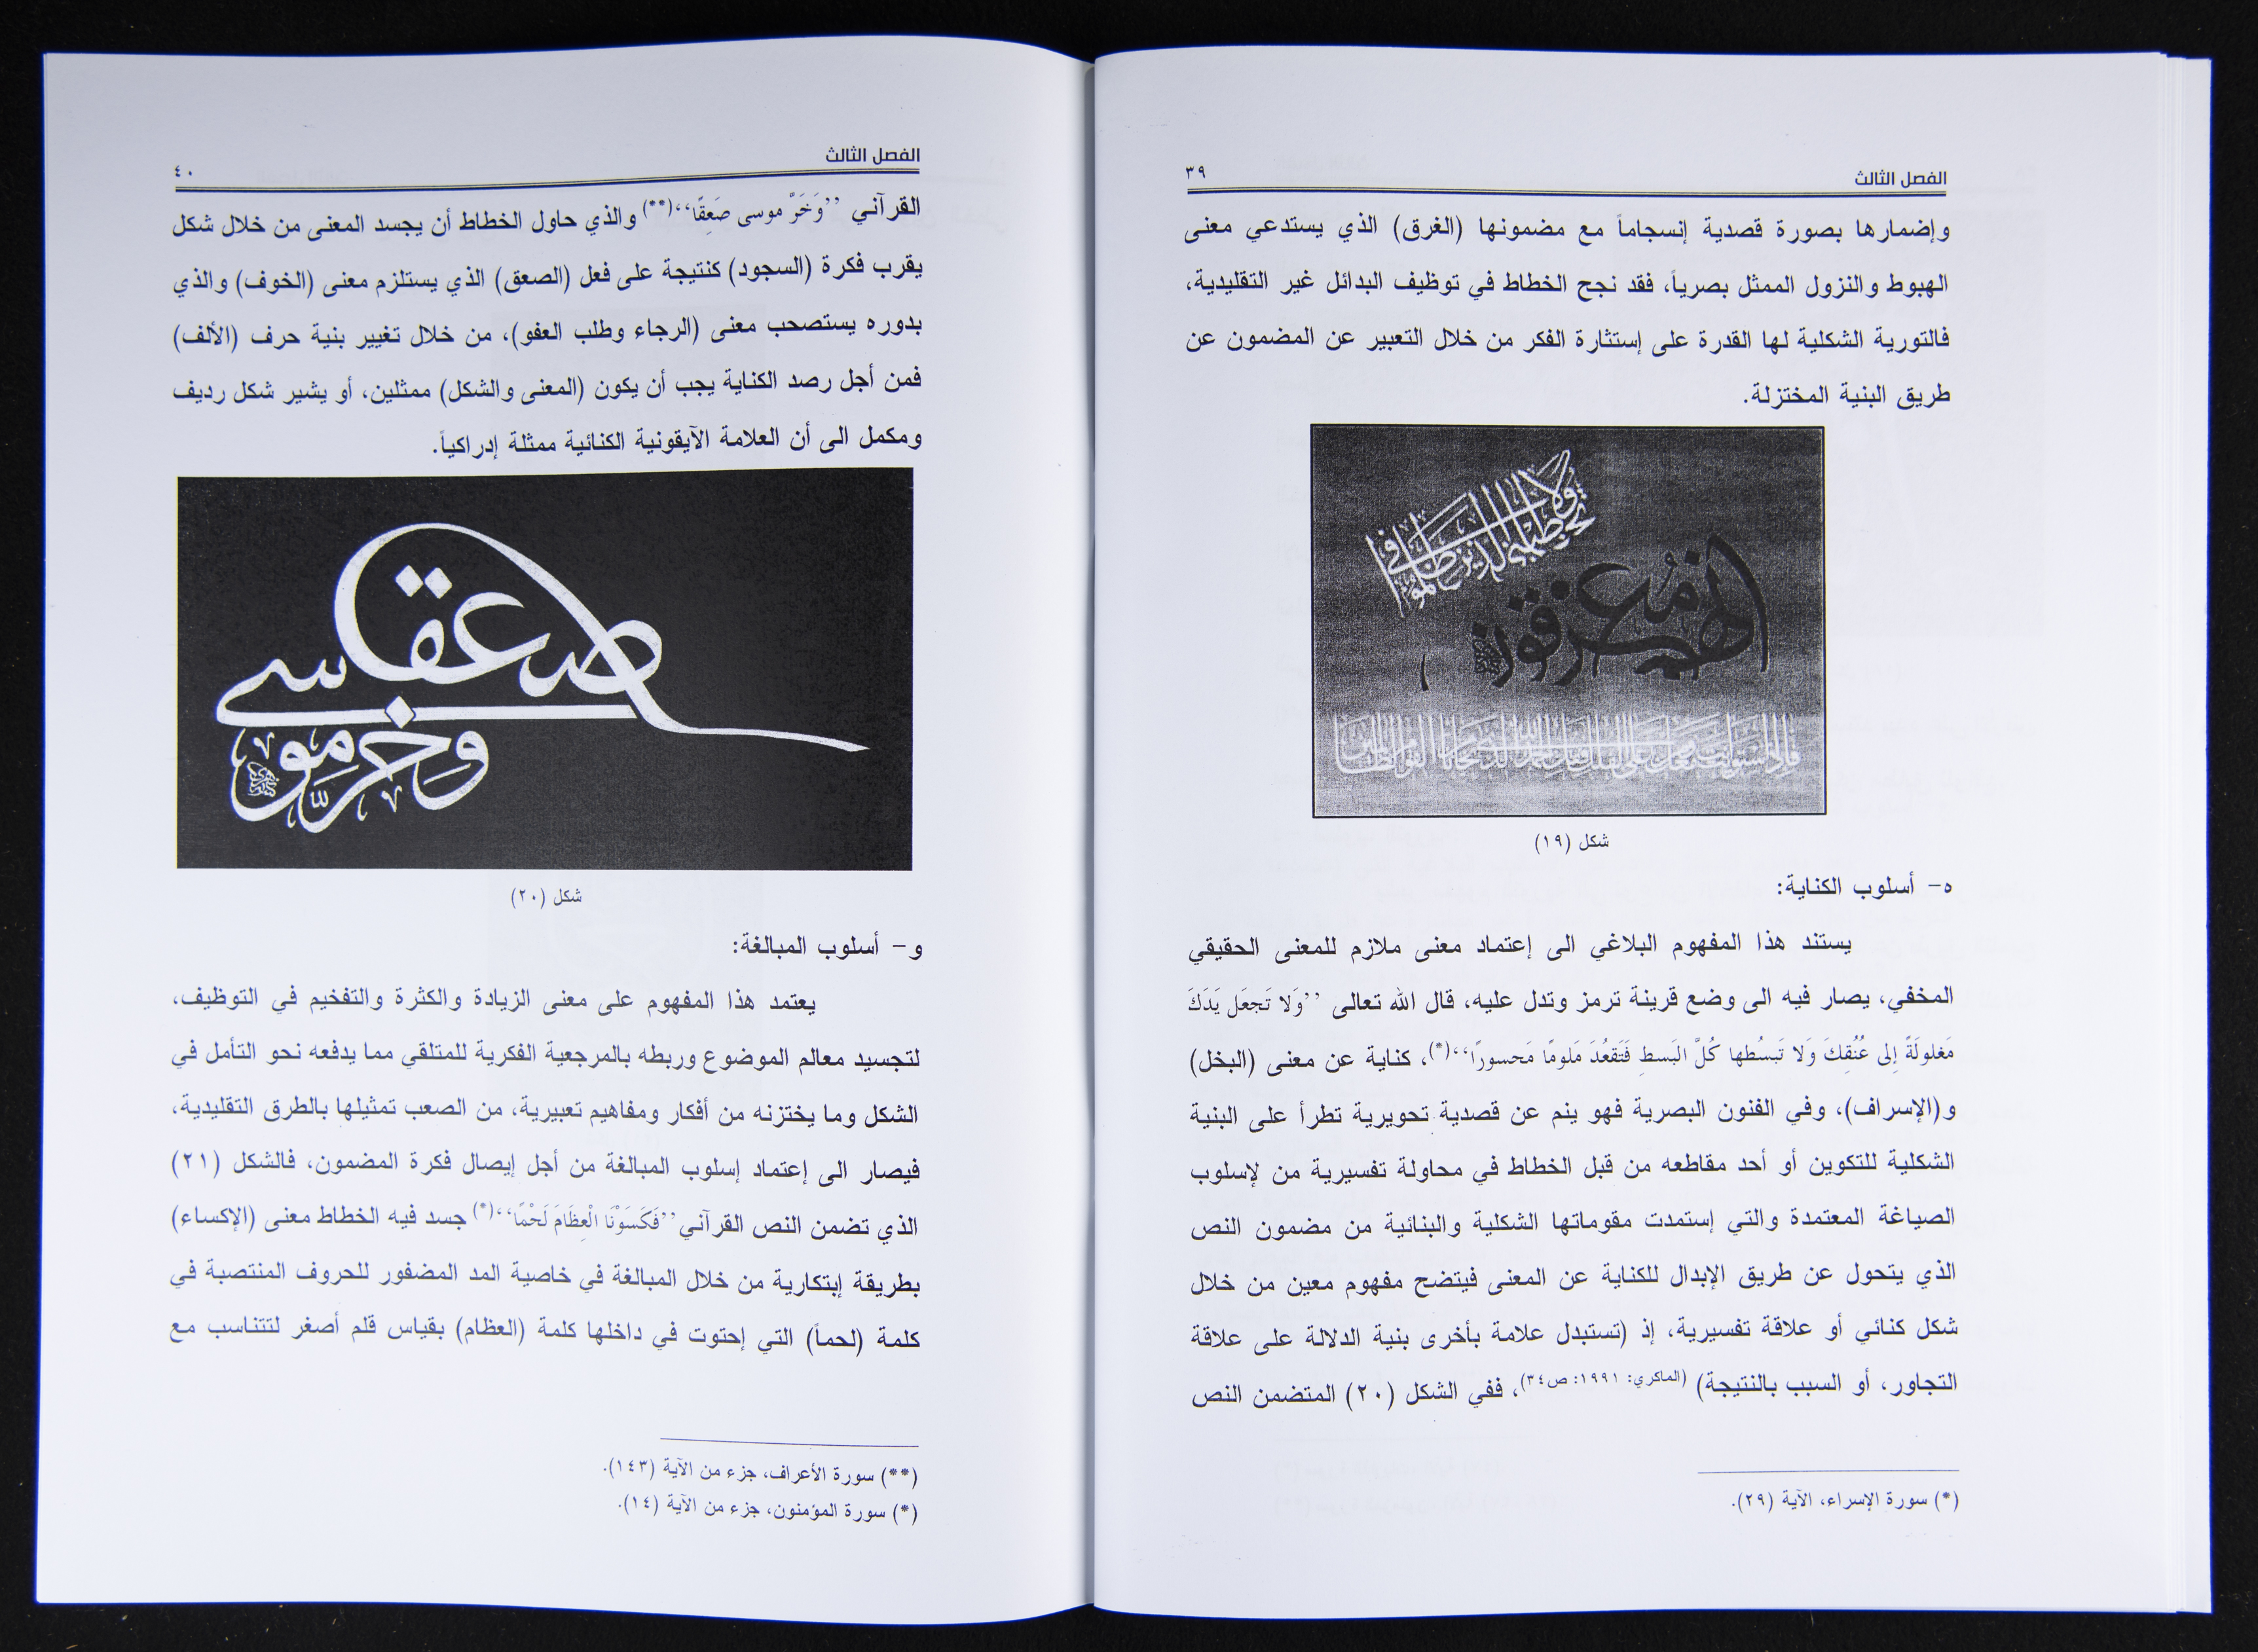 الفصل الثالث
٣٩
وإضمارها بصورة قصدية إنسجاماً مع مضمونها (الغرق) الذي يستدعي معنى
الهبوط والنزول الممثل بصرياً، فقد نجح الخطاط في توظيف البدائل غير التقليدية،
فالتورية الشكلية لها القدرة على إستثارة الفكر من خلال التعبير عن المضمون عن
طريق البنية المختزلة.
ولا تخاطبني في الذين ظلموا
إنهم مغرقون
شكل (١٩)
ه- أسلوب الكناية:
يستند هذا المفهوم البلاغي الى إعتماد معنى ملازم للمعنى الحقيقي
المخفي، يصار فيه الى وضع قرينة ترمز وتدل عليه، قال الله تعالى ’’وَلا تَجعَل يَدَكَ
مَغلولَةً إِلى عُنُقِكَ وَلا تَبسُطها كُلَّ البَسطِ فَتَقعُدَ مَلومًا مَحسورًا‘‘(*)، كناية عن معنى (البخل)
و(الإسراف)، وفي الفنون البصرية فهو ينم عن قصدية تحويرية تطرأ على البنية
الشكلية للتكوين أو أحد مقاطعه من قبل الخطاط في محاولة تفسيرية من لإسلوب
الصياغة المعتمدة والتي إستمدت مقوماتها الشكلية والبنائية من مضمون النص
الذي يتحول عن طريق الإبدال للكناية عن المعنى فيتضح مفهوم معين من خلال
شكل كنائي أو علاقة تفسيرية، إذ (تستبدل علامة بأخرى بنية الدلالة على علاقة
التجاور، أو السبب بالنتيجة) (الماكري: ١٩٩١: ص٣٤)، ففي الشكل (٢٠) المتضمن النص
(*) سورة الإسراء، الآية (٢٩).
الفصل الثالث
٤٠
القرآني ’’وَخَرَّ موسى صَعِقًا‘‘(**) والذي حاول الخطاط أن يجسد المعنى من خلال شكل
يقرب فكرة (السجود) كنتيجة على فعل (الصعق) الذي يستلزم معنى (الخوف) والذي
بدوره يستصحب معنى (الرجاء وطلب العفو)، من خلال تغيير بنية حرف (الألف)
فمن أجل رصد الكناية يجب أن يكون (المعنى والشكل) ممثلين، أو يشير شكل رديف
ومكمل الى أن العلامة الآيقونية الكنائية ممثلة إدراكياً.
وخر موسى صعقا
شكل (٢٠)
و- أسلوب المبالغة:
يعتمد هذا المفهوم على معنى الزيادة والكثرة والتفخيم في التوظيف،
لتجسيد معالم الموضوع وربطه بالمرجعية الفكرية للمتلقي مما يدفعه نحو التأمل في
الشكل وما يختزنه من أفكار ومفاهيم تعبيرية، من الصعب تمثيلها بالطرق التقليدية،
فيصار الى إعتماد إسلوب المبالغة من أجل إيصال فكرة المضمون، فالشكل (٢١)
الذي تضمن النص القرآني ’’فَكَسَوْنَا الْعِظَامَ لَحْمًا‘‘(*) جسد فيه الخطاط معنى (الإكساء)
بطريقة إبتكارية من خلال المبالغة في خاصية المد المضفور للحروف المنتصبة في
كلمة (لحماً) التي إحتوت في داخلها كلمة (العظام) بقياس قلم أصغر لتتناسب مع
(**) سورة الأعراف، جزء من الآية (١٤٣).
(*) سورة المؤمنون، جزء من الآية (١٤).